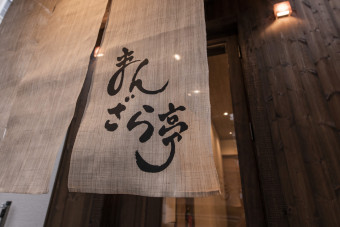 まん
ざら亭